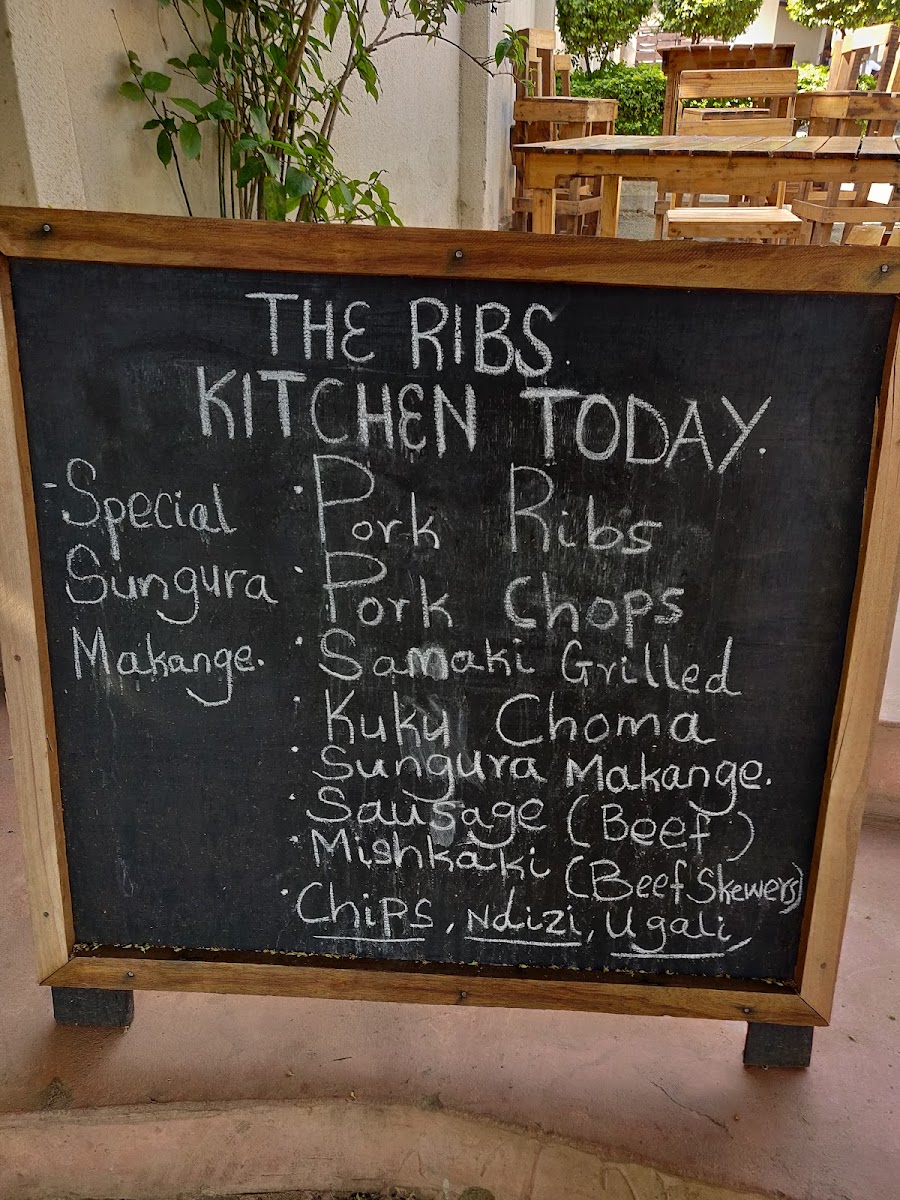 THE RIBS.
KITCHEN TODAY.
-Special
Sungura
Makange.
• Pork Ribs
• Pork Chops
• Samaki Grilled
• Kuku Choma
• Sungura Makange.
• Sausage (Beef)
• Mishkaki (Beef Skewers)
• Chips, Ndizi, Ugali,